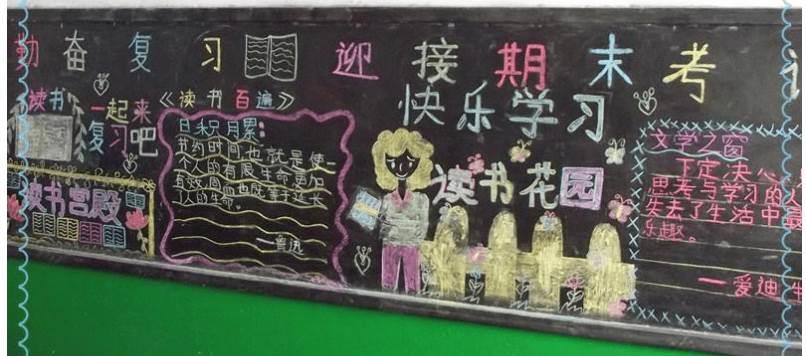 勤奋复习 迎接期末考
读书
一起来
复习吧
读书宫殿
《读书百遍》
日积月累:
节约时间也就是使一
个人的有限生命更加
有效而也即等于延长
人的生命。
—鲁迅
快乐学习
读书花园
文学之窗
下定决心
思考与学习的人
失去了生活中最
乐趣。
—爱迪生